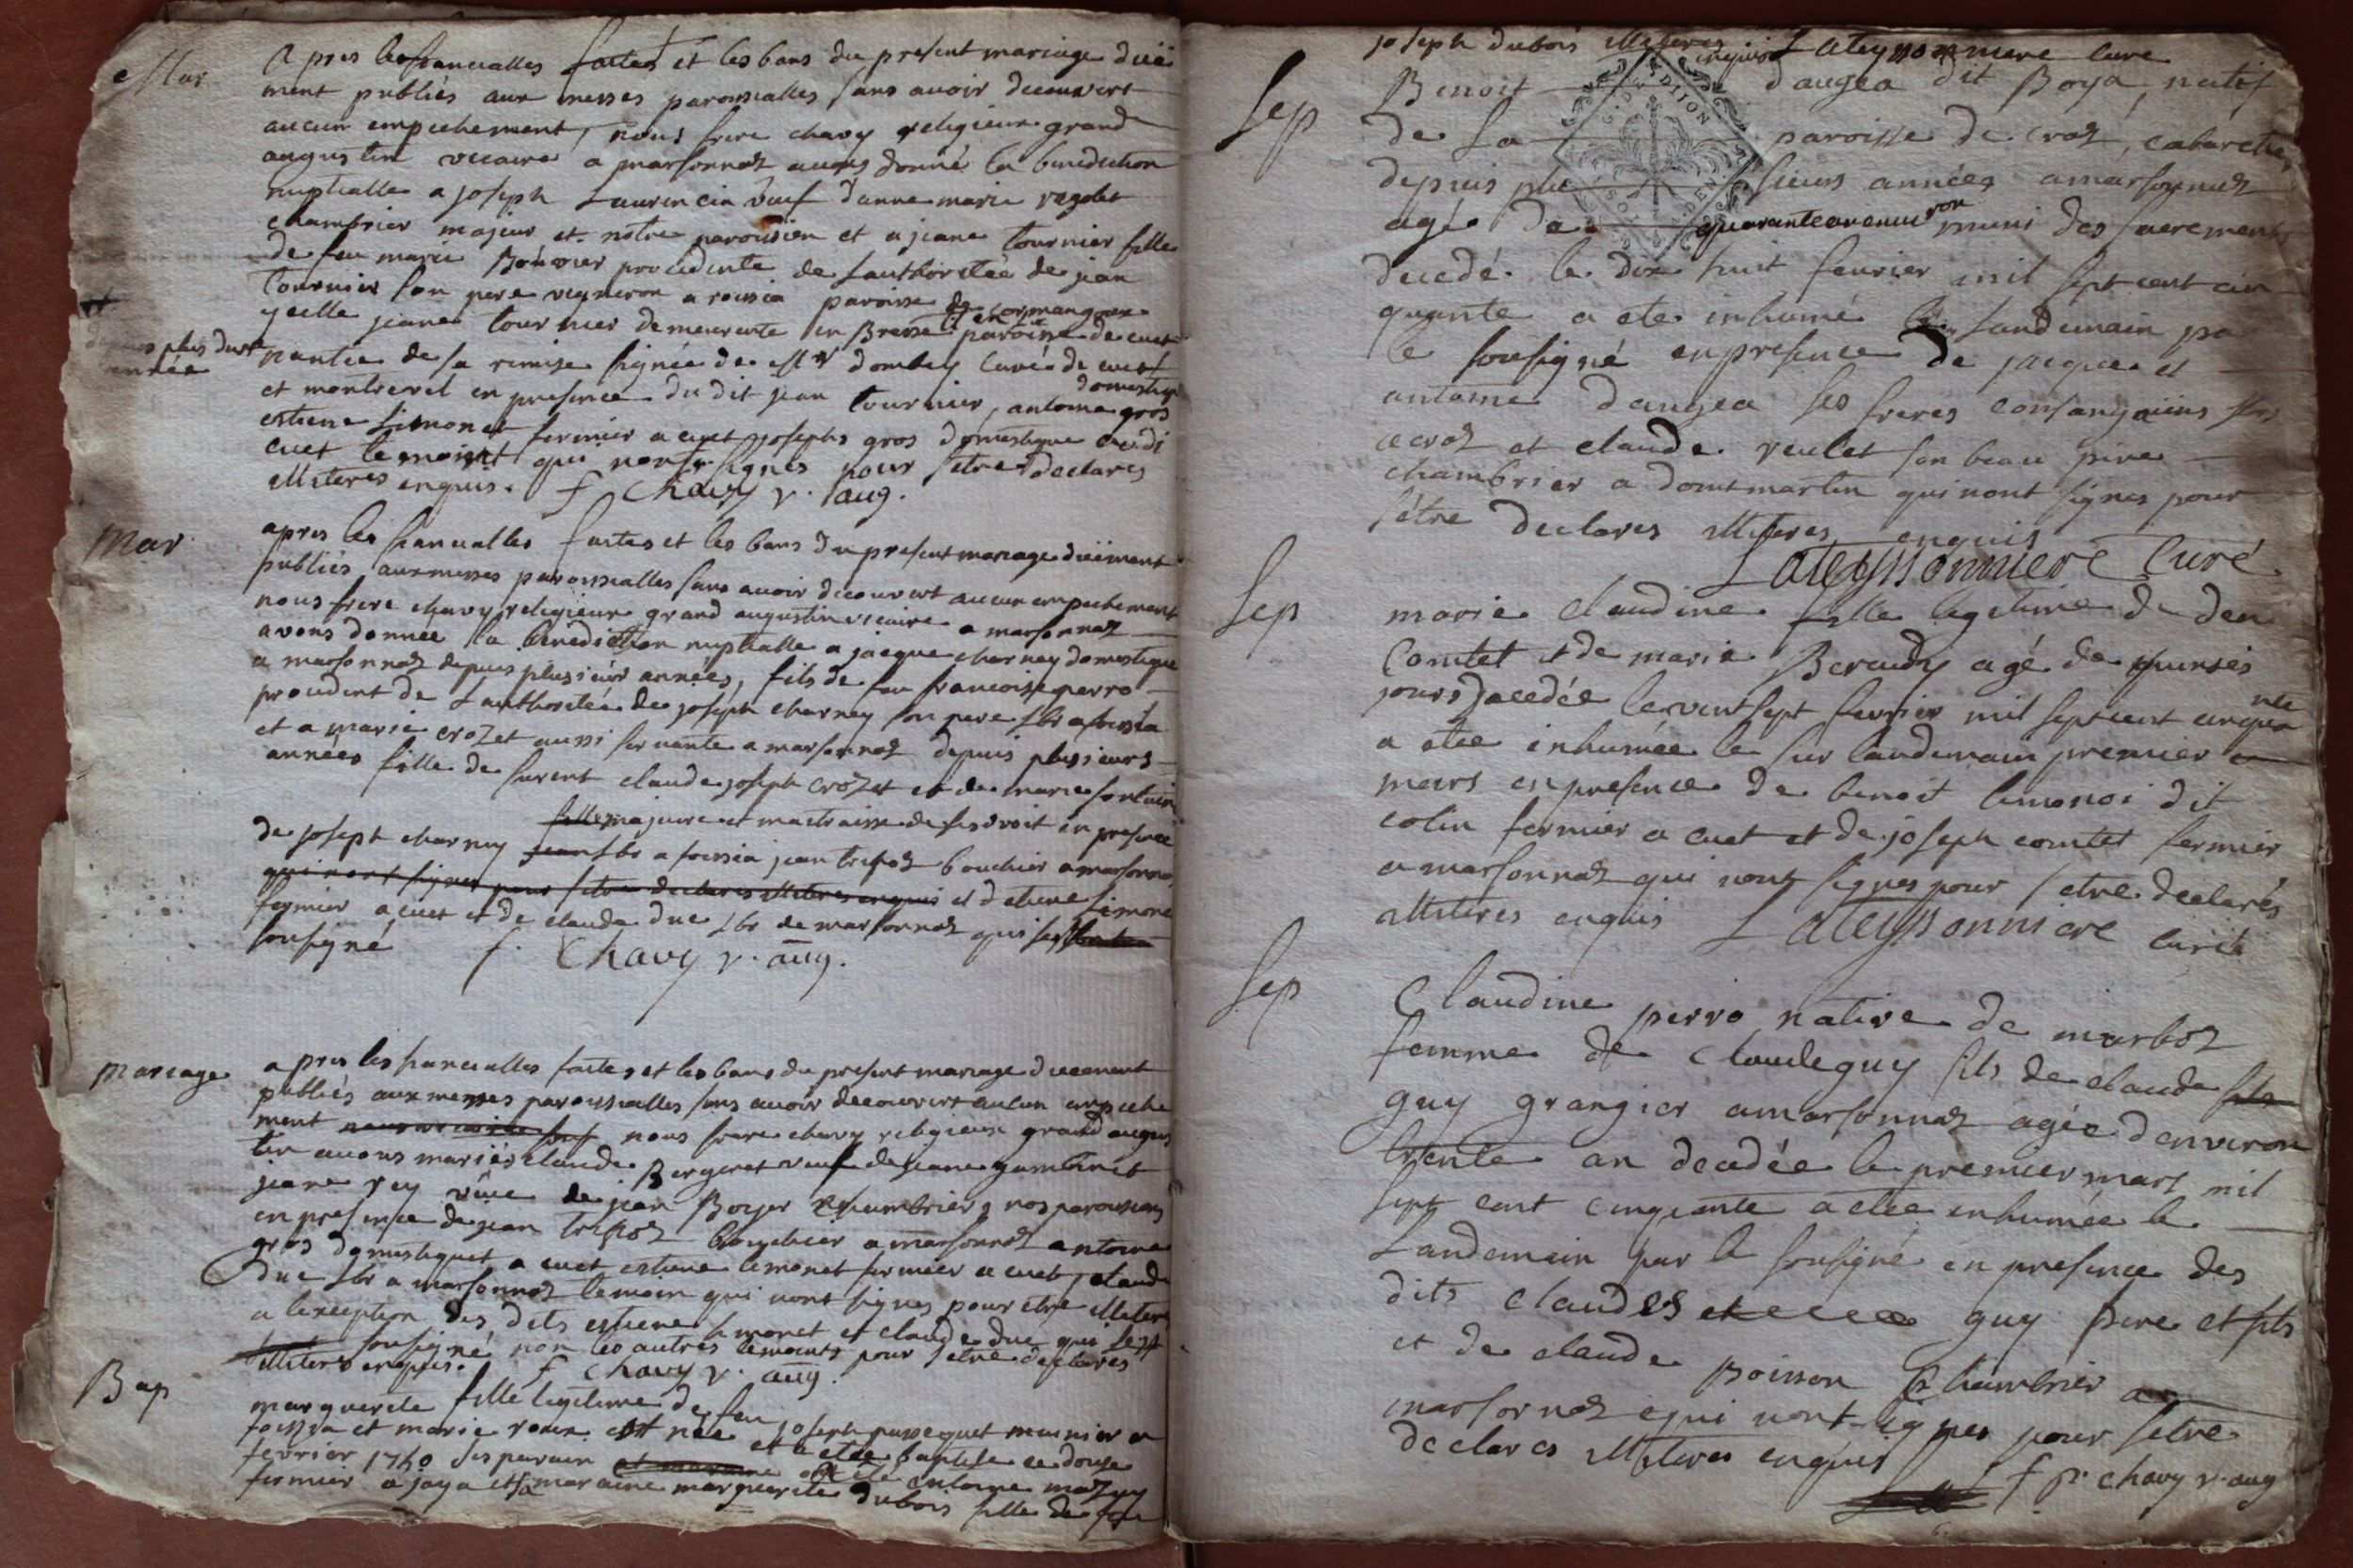 Mar
Apres les fiancialles faites et les bans du present mariage düe
ment publiés aux messes paroissialles sans avoir decouvert
aucun empechement, nous frere chavy religieux grand
augustin viccaire a marsonnaz avons donné la benediction
nuptialle a joseph Laurencin veuf d'anne marie
chambrier majeur et notre paroissien et a jeane tournier fille
de feu marie Bouvier procedente de Lauthoritée de jean
tournier son pere vigneron a paroisse de cormangoux
ycelle jeane tournier demeurante en Bresse paroisse de cuet
plus dune
année
nantie de sa remise signée de Mr dombey curé de cuet
et montrevel en presence du dit jean tournier, antoine gros domestique
estiene Limonet fermier a cuet joseph gros domestique audi
cuet temoint qui nont signés pour s'etre declares
illiteres enquis. f chavy v. aug.
Mar
apres les fiancialles faites et les bans du present mariage düement
publiés aux messes paroissialles sans avoir decouvert aucun empechement
nous frere chavy religieux grand augustin vicaire a marsonnaz
avons donnee la benediction nuptialle a jacque charney domestique
a marsonnaz depuis plusieur années, fils de feu francoise perro
procedent de Lauthoritée de joseph charney son pere lbr a foissia
et a marie crozet aussi servante a marsonnaz depuis plusieurs
années fille de furent claude joseph crozet et de marie fontain
fille majeure et maitraisse de ses droit en presence
de josept charney jean lbr a foissia jean tripoz bouchier a marsonnaz
qui nont signes pour setre declares illiteres enquis et d etiene Limone
fermier a cuet et de claude duc lbr de marsonnaz qui
sousigné f. Chavy v. aug.
Mariage
apres les fiancialles faites et les bans du present mariage dueement
publiés aux messes paroissialles sans avoir decouvert aucun empeche
ment nous frere chavy religieux grand augus
tin avons mariés claude Bergeret veuf de jeane gambinet
jeane rey veüve de jean Boyer chambriers nos paroissiens
en presence de jean tripoz bouchier a marsonnaz antoine
gros domestiquet a cuet estiene limonet fermier a cuet, claude
duc lbr a marsonnaz temoin qui nont signes pour etre illiter
a lexception des dits estiene limonet et claude duc qui se st
sousigné non les autres temoints pour setre declares
illiteres enquis. f chavy v. aug.
Bap
marguerite fille legitime de feu joseph munier a
foissia et marie roux est née et a etee baptisee ce douze
fevrier 1750 ses parain et maraine ont ete antoine mazuy
fermier a jaya et sa maraine marguerite Dubois fille de feu
joseph dubois illiteres enquis Lateyssonniere curé
Sep
Benoit dangea dit Boya, natif
de La paroisse de croz, cabaretier
depuis plu sieurs années a marsonnaz
agé de quarante an environ muni des sacrements
decedé le dix huit fevrier mil sept cent cin
quante a ete inhumé le Landemain pa
le sousigné en presence de jacque et
antoine dangea ses freres consanguins lbrs
a croz et claude veulet son beau pere
chambrier a domtmartin qui nont signes pour
s'être declares illiteres enquis
Lateyssonniere Curé
Sep
marie claudine fille legitime de den
Comtet et de marie Beraudy agé de quinses
jours decedée le vint sept fevrier mil sept cent cinqua nte
a etee inhumée le sur landemain premier
mars en presence de benoit limonoi dit
colin fermier a cuet et de joseph comtet fermier
a marsonnaz qui nont signes pour s etre declarés
illiteres enquis Lateyssonniere curé
Sep
Claudine perro native de marboz
femme de claude guy fils de claude fils
guy grangier a marsonnaz agée d'environ
trente an decedée le premier mars mil
sept cent cinquante a etee inhumée le
Landemain par le sousigné en presence des
dits claudes et guy pere et fils
et de claude poisson chambrier a
marsonnaz qui nont signes pour setre
declares illiteres enquis
f pr chavy v. aug